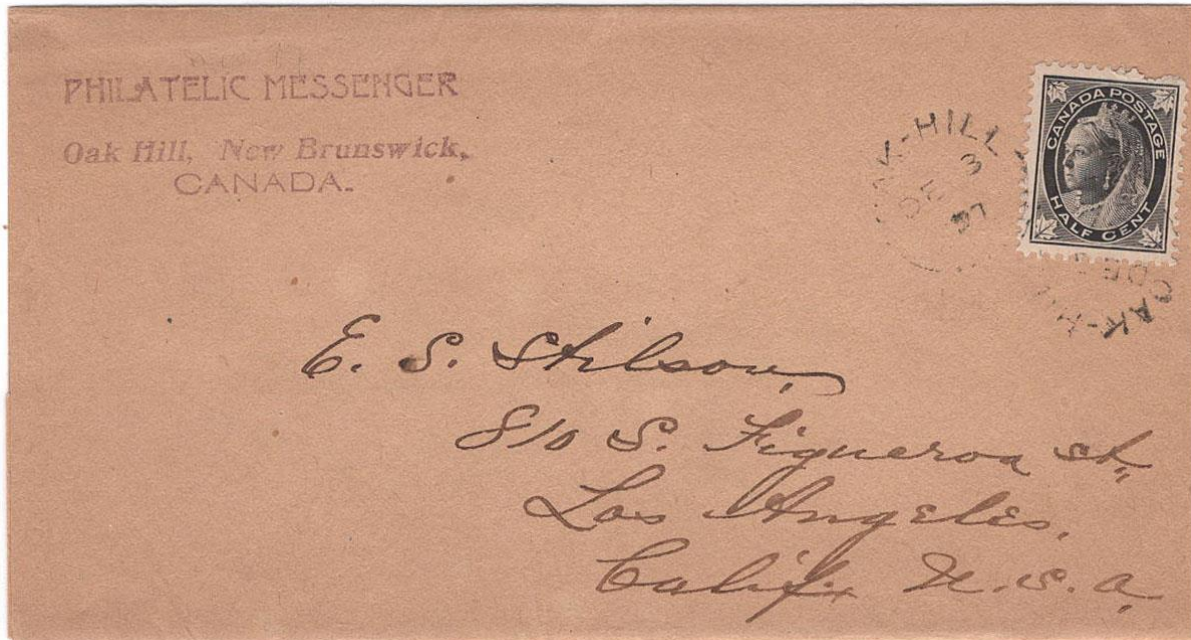 PHILATELIC MESSENGER
Oak Hill, New Brunswick,
CANADA.
OAK-HILL
DE 3
97
CANADA POSTAGE
HALF CENT
DE
OAK-H
E. S. Stilson,
810 S. Figueroa st.,
Los Angeles,
Calif. U.S.A.